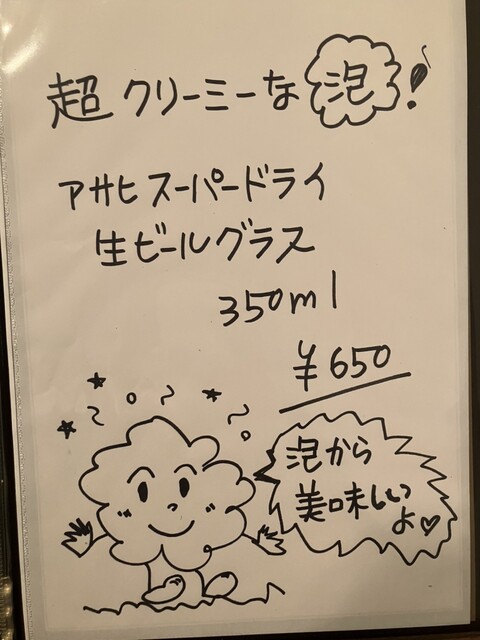 超クリーミーな泡!
アサヒスーパードライ
生ビールグラス
350ml
¥650
泡から
美味しいっ
よ♡